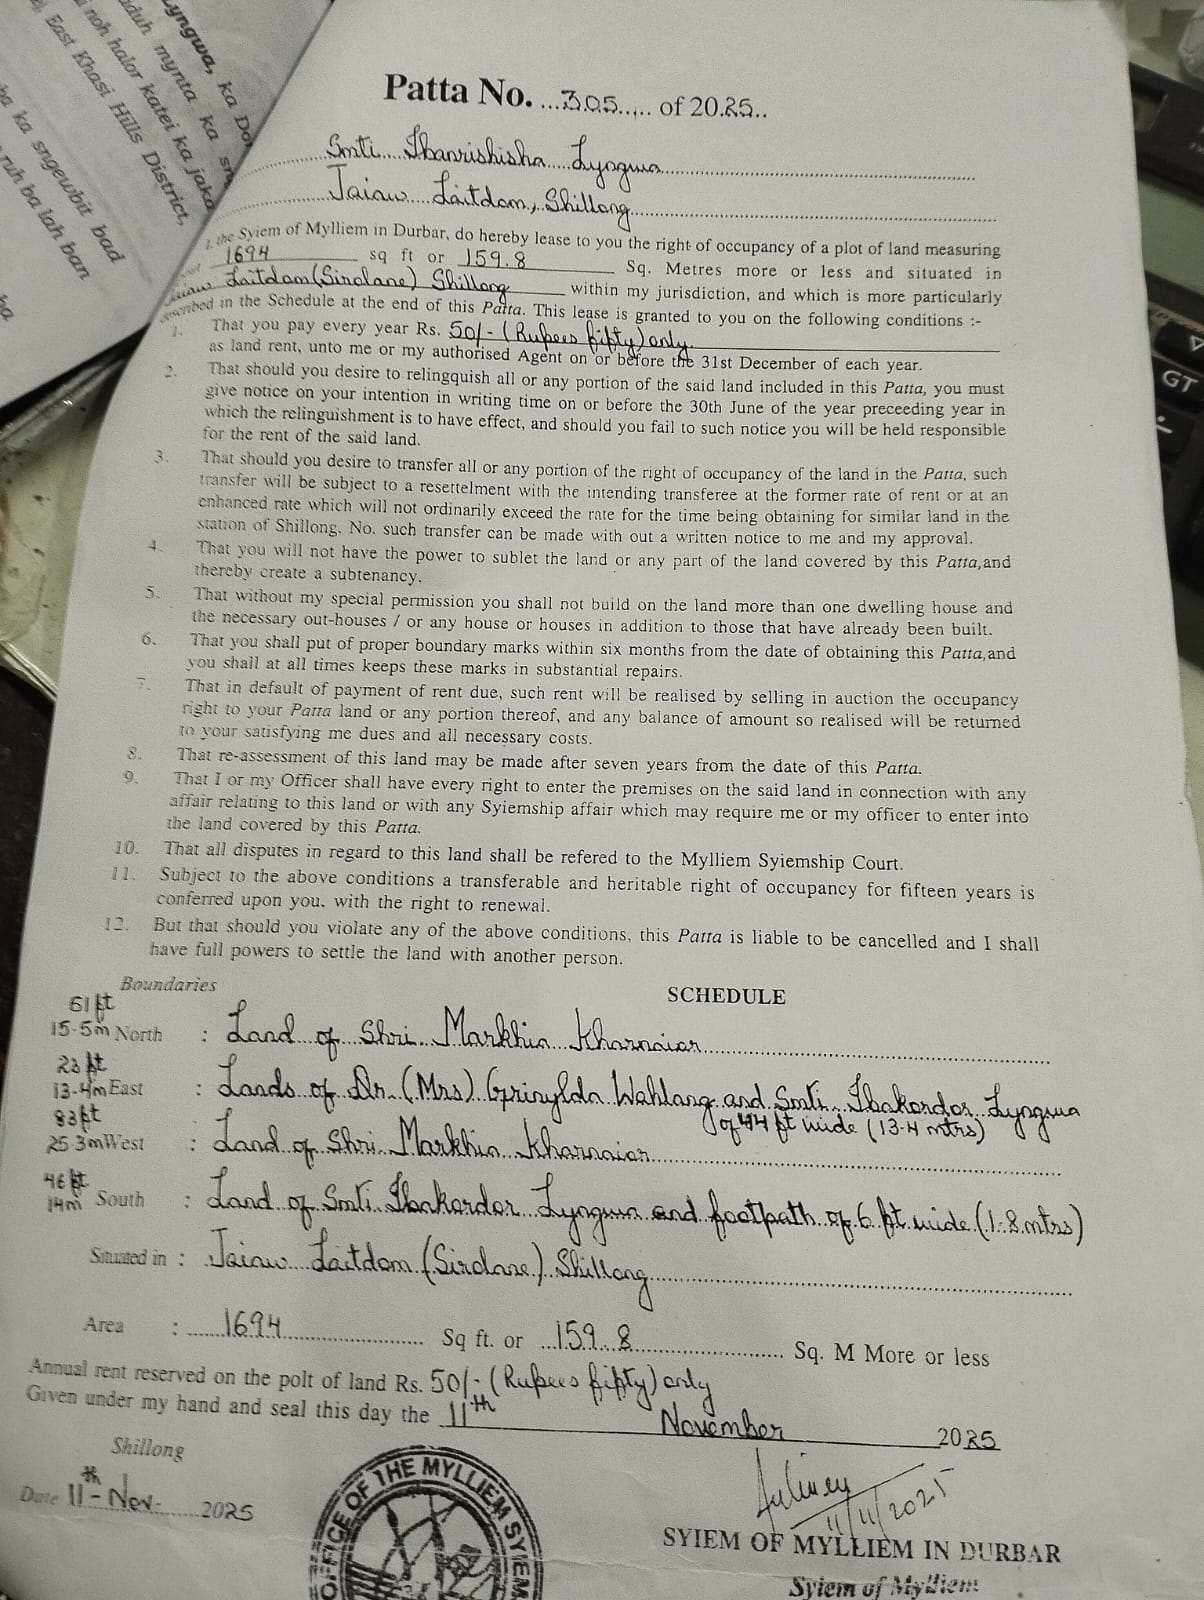 yngwa, ka Do
aduh mynta ka sn
i noh halor katei ka jaka
East Khasi Hills District,
ka sngewbit bad
ruh ba lah ban
Patta No. ...305..... of 2025..
Smti Ibanrishisha Lyngwa
Jaiaw Laitdom, Shillong
I, the Syiem of Mylliem in Durbar, do hereby lease to you the right of occupancy of a plot of land measuring
1694 sq ft or 159.8 Sq. Metres more or less and situated in
Jaiaw Laitdom (Sirdare) Shillong within my jurisdiction, and which is more particularly
described in the Schedule at the end of this Patta. This lease is granted to you on the following conditions :-
1. That you pay every year Rs. 50/- (Rupees fifty) only
as land rent, unto me or my authorised Agent on or before the 31st December of each year.
2. That should you desire to relingquish all or any portion of the said land included in this Patta, you must
give notice on your intention in writing time on or before the 30th June of the year preceeding year in
which the relinguishment is to have effect, and should you fail to such notice you will be held responsible
for the rent of the said land.
3. That should you desire to transfer all or any portion of the right of occupancy of the land in the Patta, such
transfer will be subject to a resettelment with the intending transferee at the former rate of rent or at an
enhanced rate which will not ordinarily exceed the rate for the time being obtaining for similar land in the
station of Shillong. No. such transfer can be made with out a written notice to me and my approval.
4. That you will not have the power to sublet the land or any part of the land covered by this Patta,and
thereby create a subtenancy.
5. That without my special permission you shall not build on the land more than one dwelling house and
the necessary out-houses / or any house or houses in addition to those that have already been built.
6. That you shall put of proper boundary marks within six months from the date of obtaining this Patta,and
you shall at all times keeps these marks in substantial repairs.
7. That in default of payment of rent due, such rent will be realised by selling in auction the occupancy
right to your Patta land or any portion thereof, and any balance of amount so realised will be returned
to your satisfying me dues and all necessary costs.
8. That re-assessment of this land may be made after seven years from the date of this Patta.
9. That I or my Officer shall have every right to enter the premises on the said land in connection with any
affair relating to this land or with any Syiemship affair which may require me or my officer to enter into
the land covered by this Patta.
10. That all disputes in regard to this land shall be refered to the Mylliem Syiemship Court.
11. Subject to the above conditions a transferable and heritable right of occupancy for fifteen years is
conferred upon you, with the right to renewal.
12. But that should you violate any of the above conditions, this Patta is liable to be cancelled and I shall
have full powers to settle the land with another person.
Boundaries
SCHEDULE
51 ft
15.5m North : Land of Shri Markhin Kharnaior
23 ft
13.4m East : Lands of Dr. (Mrs) Grinylda Wahlang and Smti Ibakordor Lyngwa
of 44 ft wide (13.4 mtrs)
83 ft
25.3m West : Land of Shri Markhin Kharnaior
46 ft
14m South : Land of Smti Ibakordor Lyngwa and footpath of 6 ft wide (1.8 mtrs)
Situated in : Jaiaw Laitdom (Sirdare) Shillong
Area : 1694 Sq ft. or 159.8 Sq. M More or less
Annual rent reserved on the polt of land Rs. 50/- (Rupees fifty) only
Given under my hand and seal this day the 11th November 2025
Shillong
Date 11th - Nov. 2025
11/11/2025
OFFICE OF THE MYLLIEM SYIEM
SYIEM OF MYLLIEM IN DURBAR
Syiem of Mylliem
GT